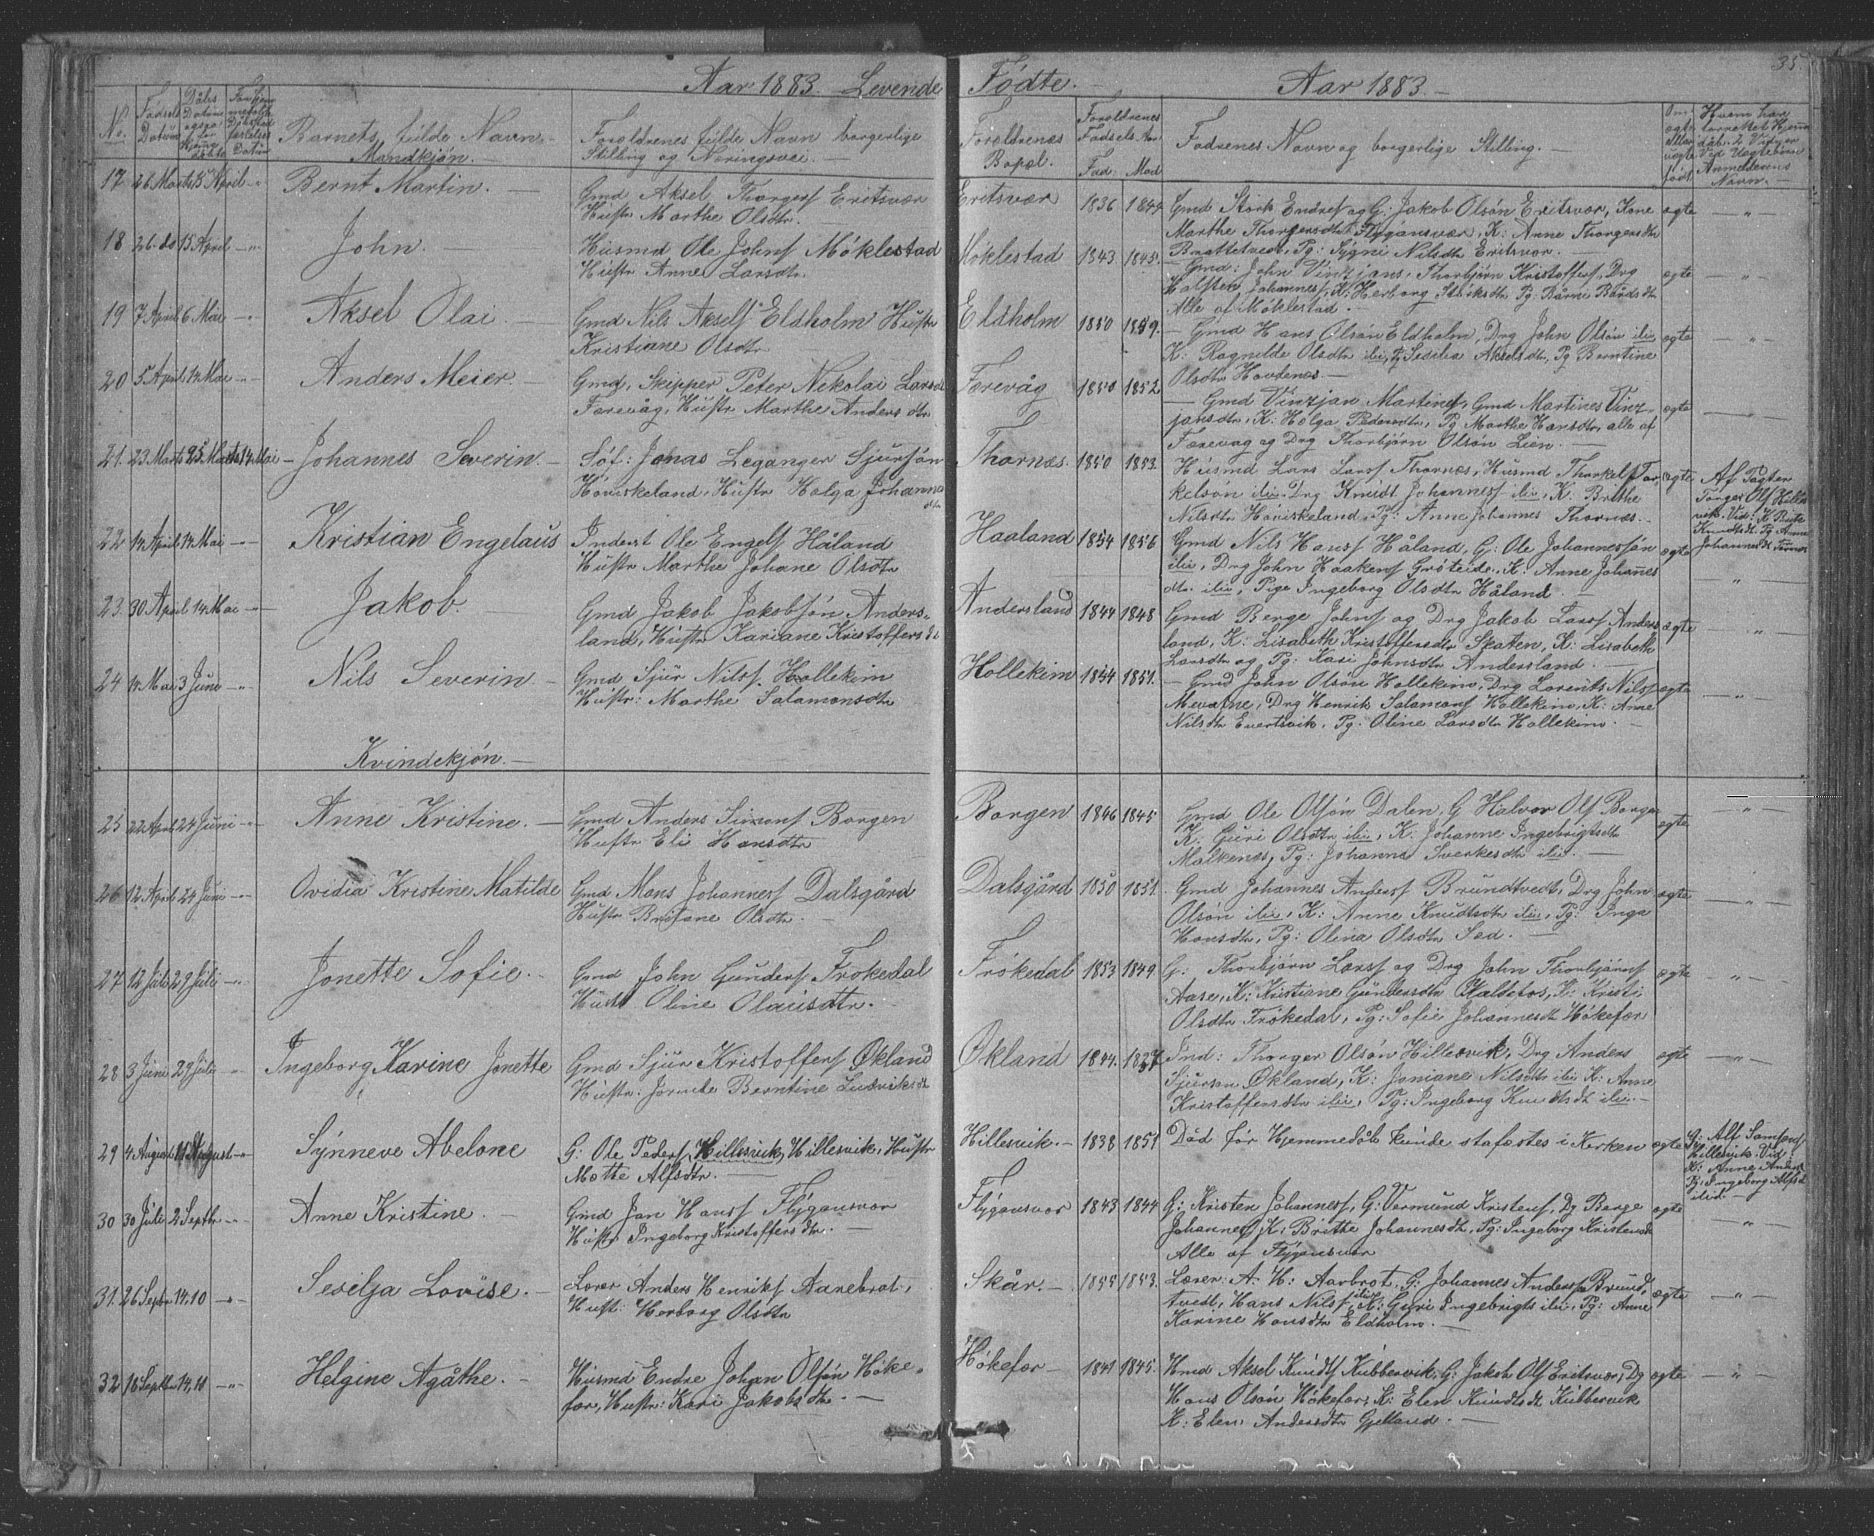 Aar 1883. Levende Fødte. Aar 1883. 35.
No. Fødsels Datum Daabs Datum
Barnets fulde Navn.
Mandkjøn.
Forældrenes fulde Navn borgerlige
Stilling og Næringsvei.
Forældrenes
Bopæl.
Forældrenes
Fødsels Aar
Fad. Mod.
Faddernes Navn og borgerlige Stilling.
Om
ægte
eller
uægte
født
Hvem har
forrettet Hjemme
daab. 2 Vidner
Ved Uægte børn
Anmelderens
Navn.
17 26 Marts 15 April -"- Bernt Martin. Gmd Aksel Thorgers Eritsvær
Hustr Marthe Olsdtr. Eritsvær 1836 1844 ægte -"-
Gmd Størk Endres og G: Jakob Olsøn Eritsvær, Kone
Marthe Thorgersdtr Flygansvær, K: Anne Thorgersdtr
Brattetvedt, Pg: Sygni Nilsdtr Eritsvær.
18 26 do 15 April -"- John. Husmd Ole Johns Møklestad
Hustr Anne Larsdtr. Møklestad 1843 1845. ægte -"-
Gmd: John Vinzjans, Thorbjørn Kristoffers, Drg
Holsten Johannes, K: Herborg Størksdtr Pg: Børni Bårdsdtr
Alle af Møklestad.
19 7 April 6 Mai -"- Aksel Olai Gmd Nils Aksels Eldholm Hustr
Kristiane Olsdtr Eldholm 1850 1859. ægte -"-
Gmd Hans Olsøn Eldholm, Drg John Olsøn ibi
K: Ragnilde Olsdtr ibi, Pg Sesilia Akselsdtr, Pg Berntine
Olsdtr Hovdenes
20 5 April 14 Mai -"- Anders Meier Gmd, Skipper Peter Nekolai Lars
Færevåg, Hustr Marthe Anders dtr Færevåg 1850 1852 ægte -"-
Gmd Vinzjan Martines, Gmd Martines Vinz-
jansdtr, K: Helga Pedersdtr, Pg Marthe Hansdtr, alle af
Færevag og Drg Thorbjørn Olsøn Lien.
21. 23 Marts 25 Marts 14 Mai Johannes Severin. Søf: Jonas Leganger Sjursøn
Høviskeland, Hustr Helga Johannes
dtr Thornæs. 1850 1853. ægte
Husmd Lars Larss Thornæs, Husmd Thorkels Tor-
kelsøn ibi, Drg Knudt Johanness ibi, K. Brithe
Nilsdtr Høviskeland, Pg: Anne Johannes Thornæs.
22 14 April 14 Mai -"- Kristian Engelaus Inderst Ole Engels Håland
Hustr Marthe Johane Olsdtr Haaland 1854 1856 ægte -"-
Gmd Nils Hans Håland, G: Ole Johannessøn
ibi, Drg John Haakens Grøteide, K. Anne Johannes
dtr. ibi, Pige Ingeborg Olsdtr Håland.
23. 30 April 14. Mai -"- Jakob. Gmd Jakob Jakobsøn Anders-
land, Hustr Kariane Kristoffers dtr Andersland 1844 1848 ægte -"-
Gmd Berge Johns og Drg Jakob Larss Anders
land, K: Lisabeth Kristoffersdtr Skaten, K: Lisabeth
Larsdtr og Pg: Kari Johnsdtr Andersland.
24 14 Mai 3 Juni -"- Nils Severin Gmd Sjur Nils Hollekim
Hustr: Marthe Salamonsdtr Hollekim 1844 1851. ægte -"-
Gmd John Olsøn Hollekim, Drg Lorents Nils
Mevatne, Drg Henrik Salamons Hollekim, K: Anne
Nilsdtr Evertsvik, Pg. Oline Larsdtr Hollekim.
Kvindekjøn.
25 22 April 24 Juni -"- Anne Kristine. Gmd Anders Simons Borgen
Hustr Eli Hansdtr Borgen 1846 1845 ægte -"-
Gmd Ole Olsøn Dalen, G Halvor Ols Borgen
K: Guri Olsdtr ibi, K: Johanne Ingebrigtsdtr
Malkenæs, Pg: Johanna Sverkesdtr ibi.
26 12 April 24 Juni -"- Ovidia Kristine Matilde Gmd Mons Johannes Dalsgård
Hustr Britane Olsdtr. Dalsgård 1850 1851. ægte -"-
Gmd Johannes Anders Brundtvedt, Drg John
Olsøn ibi, K: Anne Knudtsdtr ibi, Pg: Inga
Hansdtr, Pg: Olina Olsdtr Sød.
27 12 Juli 29 Juli -"- Jonette Sofie. Gmd John Gunders Frøkedal
Hustr Oline Olausdtr. Frøkedal 1853 1849. ægte -"-
G: Thorbjørn Larss og Drg John Thorbjørns
Aase, K: Kristiane Gundersdtr Skaldefos, K: Kristi
Olsdtr Frøkedal, Pg: Sofie Johannesdt Høkefær
28 3 Juni 29 Juli -"- Ingeborg Karine Jonette Gmd Sjur Kristoffers Økland
Hustr: Jornete Berntine Ludviksdt Økland 1844. 1837. ægte -"-
Ind: Thorger Olsøn Hillesvik, Drg Anders
Sjurson Økland, K: Joniane Nilsdtr ibi K: Anne
Kristoffersdtr ibi, Pg: Ingeborg Knudtsdt ibi.
29 4 August 11 August -"- Synneve Abelone G: Ole Peders Hillesvik, Hillesvik, Hustr
Mothe Alfsdtr. Hillesvik. 1838 1851 Død før Hjemmedåb kunde stafestes i Kirken ægte
G: Alf Samsons
Hillesvik. Vid
K: Anne Anders
Pg: Ingeborg Alfsd
ibid.
30 30 Juli 2 Septbr -"- Anne Kristine. Gmd Jan Hans Flygansvær
Hustr Ingeborg Kristoffersdtr. Flygansvær 1843 1844 ægte -"-
G: Kristen Johannes, G: Vermund Kristens, Dg Berge
Johannes, K: Brithe Johannesdt, Pg: Ingeborg Kristensdt
Alle af Flygansvær
31. 26 Septbr 14.10 -"- Sesilja Lovise. Lærer Anders Henriks Aarebrot,
Hust: Herborg Olsdtr Skår. 1855 1853. ægte -"-
Lærer: A. H: Aarbrot, G: Johannes Anders Brund,
tvedt, Hans Nils ibi K: Guri Ingebrigts ibi, Pg: Anne
Karine Hansdtr Eldholm.
32 16 Septbr 14,10 -"- Helgine Agåthe. Husmd Endre Johan Olsøn Høke-
fær, Hustr: Kari Jakobsdtr. Høkefær 1841 1845. ægte -"-
Hmd Aksel Knudts Kubbervik, G: Jakob Ols Eritsvær, Dg
Hans Olsøn Høkefær, K: Elen Knudtsdt Kubbervik
K: Elen Andersdtr Gjelland.